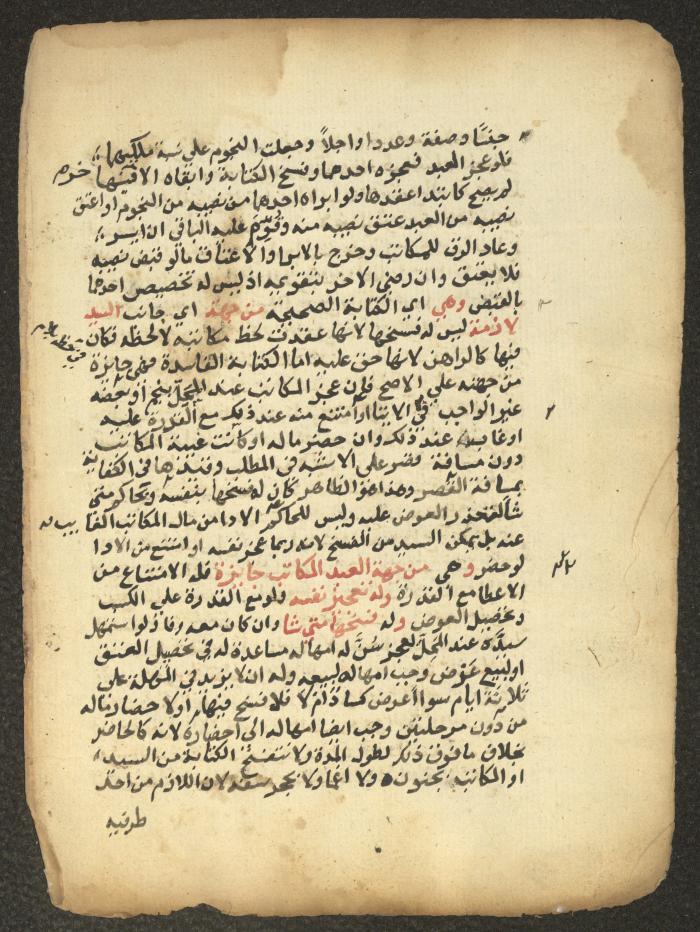 جنسًا وصفة وعددا واجلاً وجعلت النجوم علي نسبة ملكيهما
فلو عجز العبد فعجزه احدهما وفسخ الكتابة وابقاه الاخر فيها
لم يصح كابتدا عقدها ولو ابراه احدهما من نصيبه من النجوم او اعتق
نصيبه من العبد عتق نصيبه منه وقُوّم عليه الباقي ان ايسر
وعاد الرق للمكاتب وخرج بالابرا والاعتاق مالو قبض نصيبه
فلا يعتق وان رضي الاخر بتقديمه اذ ليس له تخصيص احدهما
بالقبض وهي اي الكتابة الصحيحة من جهة اي جانب السيد
لازمة ليس له فسخها لانها عقدت لحظ مكاتبه لا لحظه فكان
فيها كالراهن لانها حق عليه اما الكتابة الفاسدة فهي جايزة
من جهته علي الاصح فان عجز المكاتب عند المحل بنجم او بعضه
غير الواجب في الايتا او امتنع منه عند ذلك مع القدرة عليه
او غاب عند ذلك وان حضر ماله او كانت غيبة المكاتب
دون مسافة قصر علي الاشبه في المطلب وقيدها في الكفاية
بمسافة القصر وهذا هو الظاهر كان له فسخها بنفسه وبحاكم متي
شا لتعذر العوض عليه وليس للحاكم الادا من مال المكاتب الغايب
عنه بل يمكن السيد من الفسخ لانه ربما عجز نفسه او امتنع من الادا
لو حضر وهي من جهة العبد المكاتب جايزة فله الامتناع من
الاعطا مع القدرة وله تعجيز نفسه ولو مع القدرة علي الكسب
وتحصيل العوض وله فسخها متي شا وان كان معه وفا فلو استمهل
سيده عند المحل لعجز سُنّ له امهاله مساعدة له في تحصيل العتق
او لبيع عَرْض وجب امهاله لبيعه وله ان لا يزيد في المهلة علي
ثلاثة ايام سوا اعرض كساد ام لا فلا فسخ فيها او لاحضار ماله
من دون مرحلتين وجب ايضا امهاله الي احضاره لانه كالحاضر
بخلاف ما فوق ذلك لطول المدة ولا تنفسخ الكتابة من السيد
او المكاتب بجنون ولا اغما ولا بحجر سفه لان اللازم من احد
طرفيه